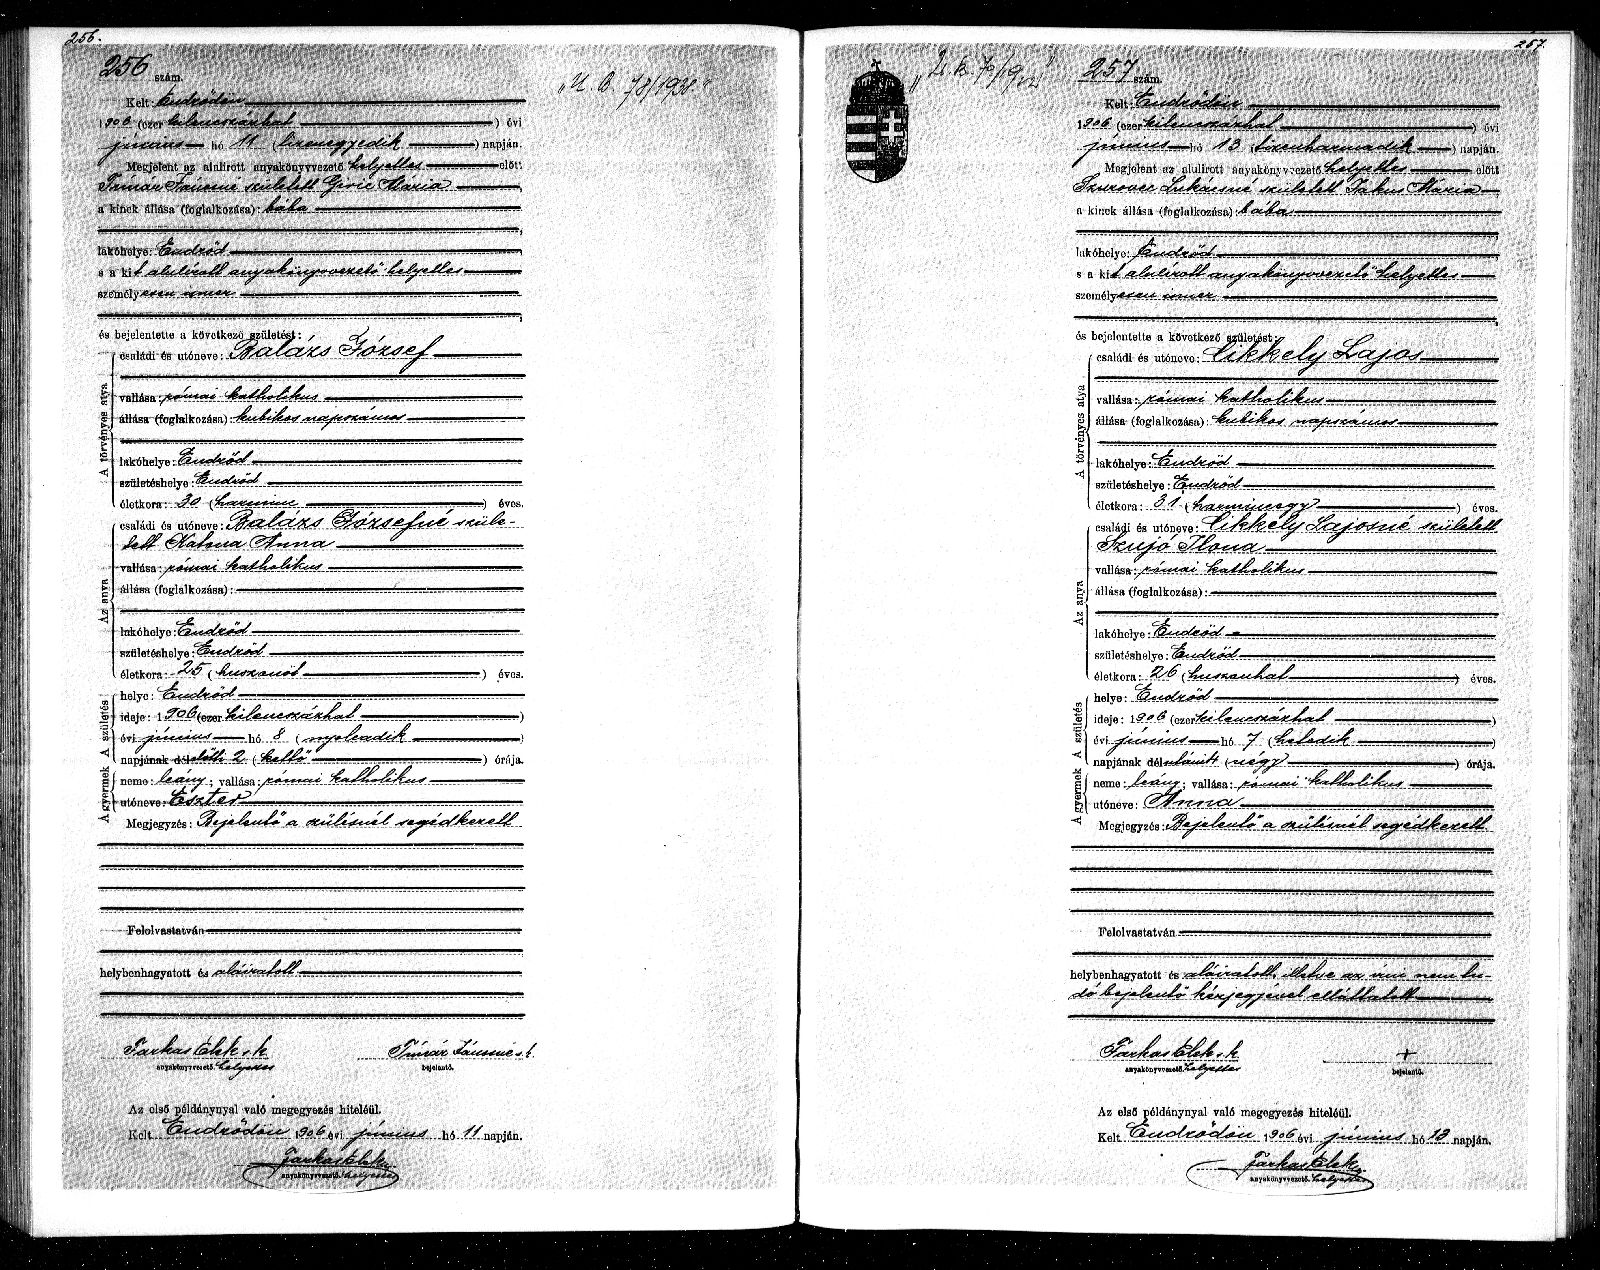 256.
256 szám.
"U. B. 78/1930"
Kelt: Endrődön
1906 (ezer kilencszázhat) évi
június hó 11 (tizenegyedik) napján.
Megjelent az alulirott anyakönyvvezető helyettes előtt
Tímár Jánosné született Giric Mária
a kinek állása (foglalkozása): bába
lakóhelye: Endrőd
s a kit alulírott anyakönyvvezető helyettes
személyesen ismer
és bejelentette a következő születést:
A törvényes atya
családi és utóneve: Balázs József
vallása: római katholikus
állása (foglalkozása): kubikos napszámos
lakóhelye: Endrőd
születéshelye: Endrőd
életkora: 30 (harminc) éves.
Az anya
családi és utóneve: Balázs Józsefné szüle-
tett Katona Anna
vallása: római katholikus
állása (foglalkozása):
lakóhelye: Endrőd
születéshelye: Endrőd
életkora: 25 (huszonöt) éves.
A születés
helye: Endrőd
ideje: 1906 (ezer kilencszázhat)
évi június hó 8 (nyolcadik)
napjának délelőtti 2 (kettő) órája.
A gyermek
neme: leány; vallása: római katholikus
utóneve: Eszter
Megjegyzés: Bejelentő a szülésnél segédkezett
Felolvastatván
helybenhagyatott és aláiratott
Farkas Elek s.k. Tímár Jánosné s.k.
anyakönyvvezető. helyettes bejelentő.
Az első példánynyal való megegyezés hiteléül.
Kelt Endrődön 1906 évi június hó 11 napján.
Farkas Elek
anyakönyvvezető. helyettes
257.
257 szám.
Kelt: Endrődön
1906 (ezer kilencszázhat) évi
június hó 13 (tizenharmadik) napján.
Megjelent az alulirott anyakönyvvezető helyettes előtt
Szurovec Lukácsné született Jakus Mária
a kinek állása (foglalkozása): bába
lakóhelye: Endrőd
s a kit alulírott anyakönyvvezető helyettes
személyesen ismer
és bejelentette a következő születést:
A törvényes atya
családi és utóneve: Cikkely Lajos
vallása: római katholikus
állása (foglalkozása): kubikos napszámos
lakóhelye: Endrőd
születéshelye: Endrőd
életkora: 31 (harmincegy) éves.
Az anya
családi és utóneve: Cikkely Lajosné született
Szujó Ilona
vallása: római katholikus
állása (foglalkozása):
lakóhelye: Endrőd
születéshelye: Endrőd
életkora: 26 (huszonhat) éves.
A születés
helye: Endrőd
ideje: 1906 (ezer kilencszázhat)
évi június hó 7 (hetedik)
napjának délutáni 4 (négy) órája.
A gyermek
neme: leány; vallása: római katholikus
utóneve: Anna
Megjegyzés: Bejelentő a szülésnél segédkezett
Felolvastatván
helybenhagyatott és aláiratott, illetve az irni nem tu-
dó bejelentő kézjegyével elláttatott
Farkas Elek s.k. +
anyakönyvvezető. helyettes bejelentő.
Az első példánynyal való megegyezés hiteléül.
Kelt Endrődön 1906 évi június hó 13 napján.
Farkas Elek
anyakönyvvezető. helyettes